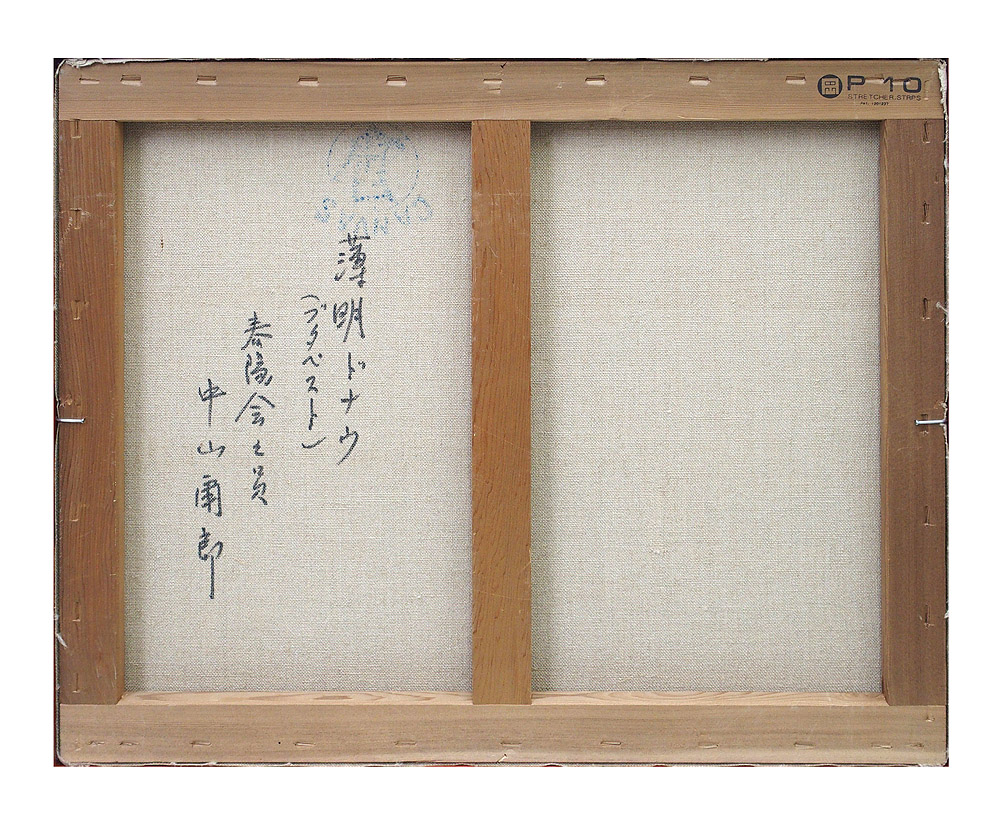 P 10
STRETCHER.STRPS
CANVAS
薄明ドナウ
(ブタペスト)
春陽会々員
中山爾郎